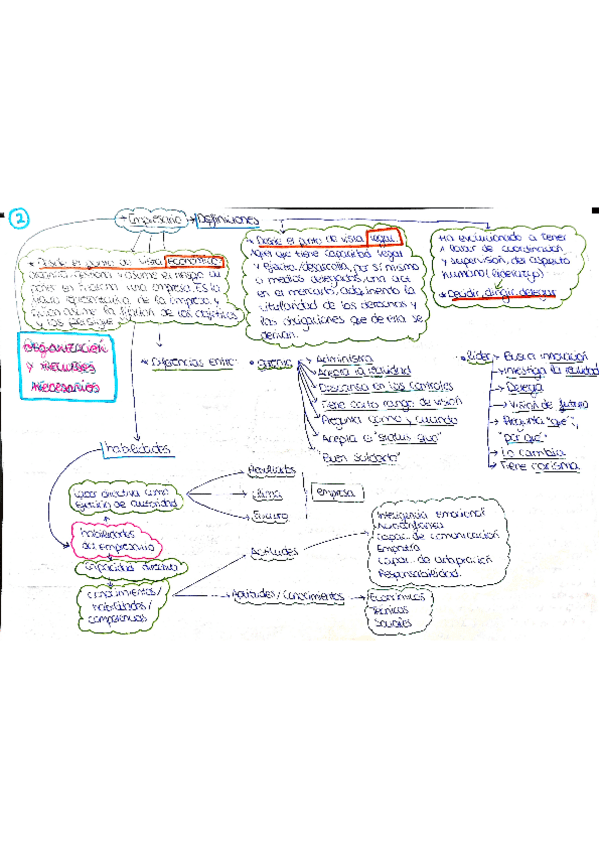 2
Empresario → Definiciones
* Desde el punto de vista económico
asume el riesgo de
poner en marcha una empresa. Es la
de la empresa y
la fijación de los objetivos
y los persigue
* Desde el punto de vista legal
Aquel que tiene capacidad legal
y ejecuta/desarrolla, por sí mismo
o medios delegados, una act
en el mercado, adquiriendo la
titularidad de los derechos y
las obligaciones que de ésta se
derivan.
Ha evolucionado a tener
labor de coordinación
y supervisión, del aspecto
humano (liderazgo)
* Decidir, dirigir, delegar
Organización
y recursos
necesarios
* Diferencias entre:
Administra
Acepta la realidad
Descansa en los controles
Tiene corto rango de visión
Pregunta cómo y cuándo
Acepta el "status quo"
"Buen soldado"
* Líder
Busca innovación
Investiga la realidad
Delega
Visión de futuro
Pregunta "qué",
"por qué"
Lo cambia
Tiene carisma
habilidades
Labor directiva como
ejercicio de autoridad
Resultados
Clima
Futuro
empresa
habilidades
del empresario
Capacidad directiva
Conocimientos/
habilidades/
competencias
Actitudes
Inteligencia emocional
Autoconfianza
Capac. de comunicación
Empatía
Capac. de adaptación
Responsabilidad.
Aptitudes/Conocimientos
Económicos
Técnicos
Sociales